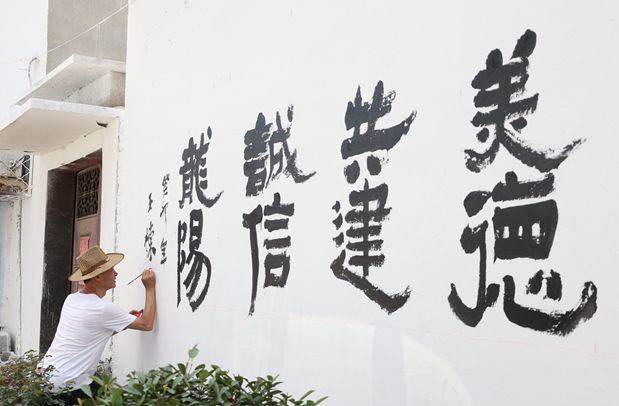 美德
共建
誠信
龍陽